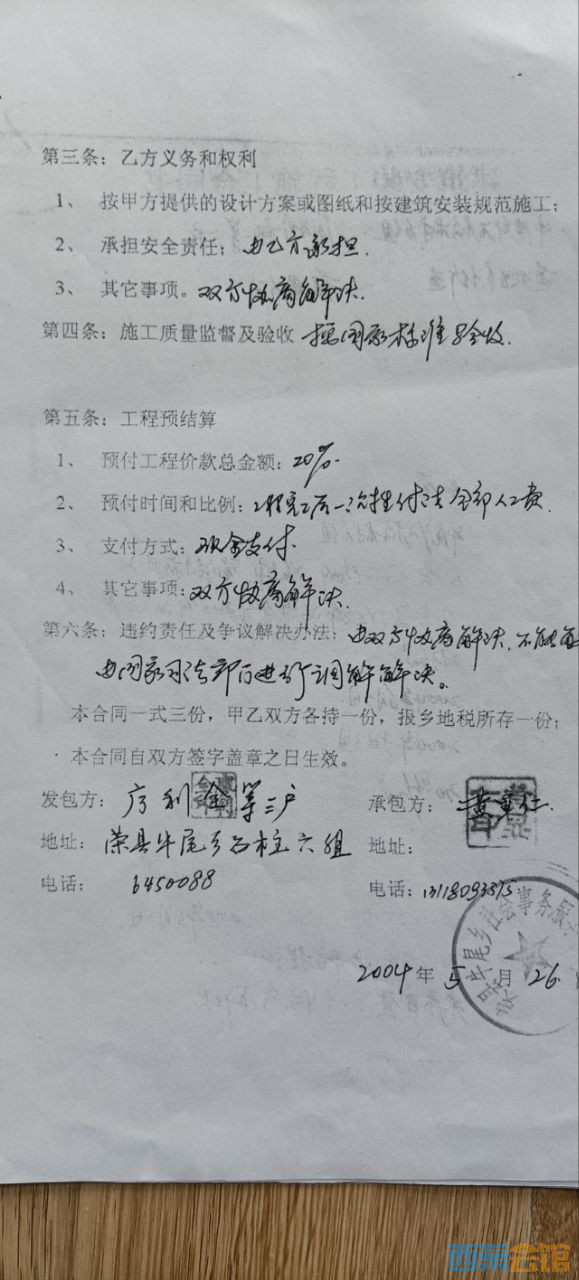 第三条：乙方义务和权利
1、 按甲方提供的设计方案或图纸和按建筑安装规范施工；
2、 承担安全责任；由乙方承担.
3、 其它事项。双方协商解决.
第四条：施工质量监督及验收 按国家标准验收.
第五条：工程预结算
1、 预付工程价款总金额：20%.
2、 预付时间和比例：工程完工后一次性付清全部人工费.
3、 支付方式：现金支付.
4、 其它事项：双方协商解决.
第六条：违约责任及争议解决办法：由双方协商解决.不能
由国家司法部门进行调解解决。
本合同一式三份，甲乙双方各持一份，报乡地税所存一份；
本合同自双方签字盖章之日生效。
发包方： 利金等三户 承包方：黄
地址：荣县牛尾乡石柱六组 地址：
电话：6450088 电话：
牛尾乡社会事务服
2004年5月26
西祠会馆